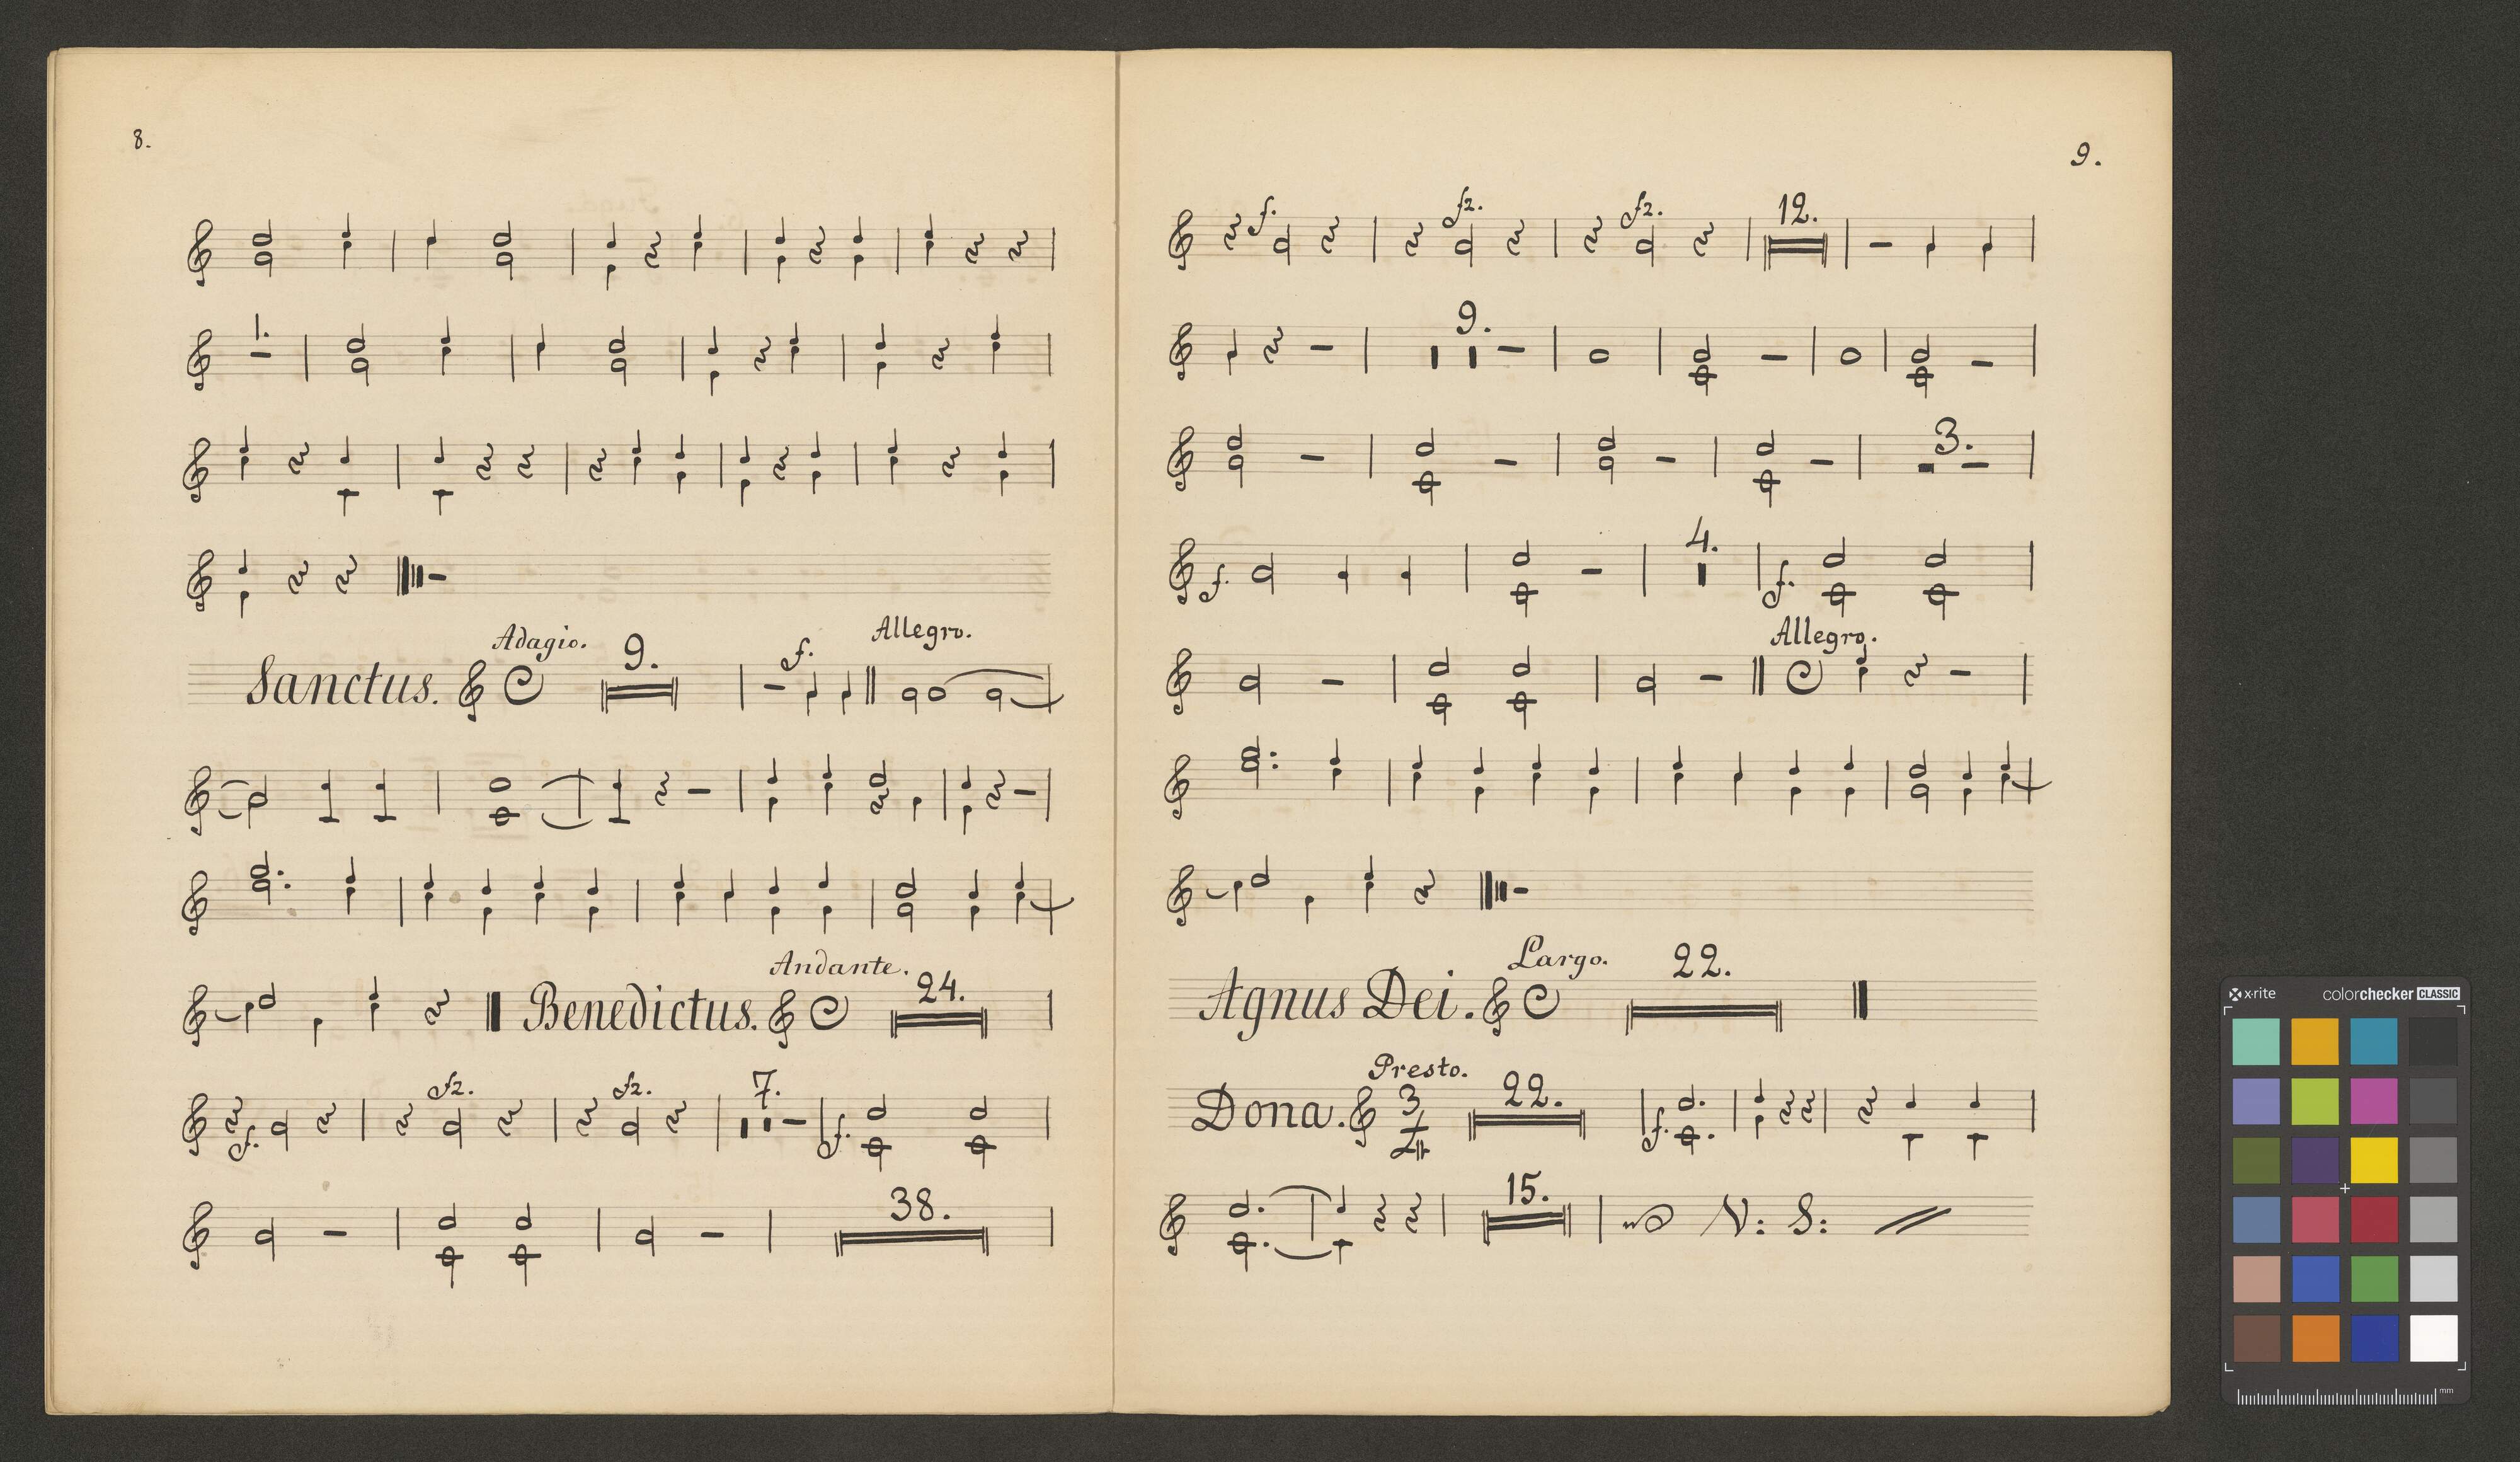 8.
1.
Adagio.
Allegro.
9.
f.
Sanctus.
Andante.
24.
Benedictus.
fz.
fz.
7.
f.
f.
38.
9.
f.
fz.
fz.
12.
9.
3.
4.
f.
f.
Allegro.
Largo.
22.
Agnus Dei.
Presto.
22.
Dona.
3
4
f.
15.
V: S:
x-rite
colorchecker CLASSIC
mm